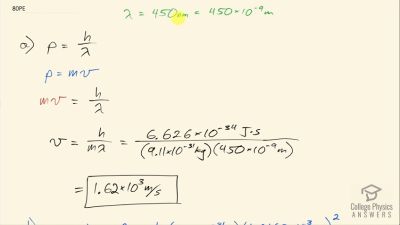 80PE
λ = 450nm = 450×10⁻⁹m
a) p = h/λ
p = mv
mv = h/λ
v = h/mλ = 6.626×10⁻³⁴ J·s/(9.11×10⁻³¹kg)(450×10⁻⁹m)
= 1.62×10³ m/s
College Physics
ANSWERS